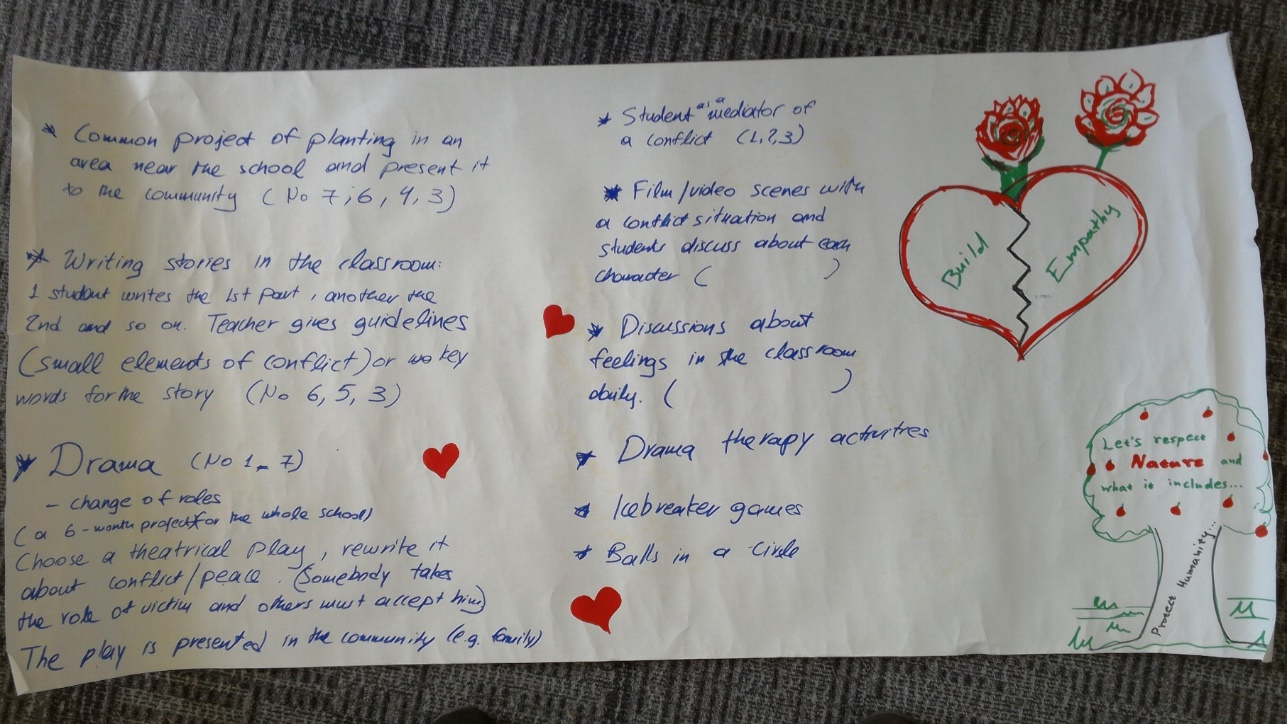 * Common project of planting in an
area near the school and present it
to the community (No 7, 6, 4, 3)
* Writing stories in the classroom:
1 student writes the 1st part, another the
2nd and so on. Teacher gives guidelines
(small elements of conflict) or key
words for the story (No 6, 5, 3)
* Drama (No 1-7)
- change of roles
(a 6-month project for the whole school)
Choose a theatrical play, rewrite it
about conflict/peace. (Somebody takes
the role of victim and others must accept him)
The play is presented in the community (e.g. family)
* Student "as a" mediator of
a conflict (1,2,3)
* Film/video scenes with
a conflict situation and
students discuss about each
character ( )
* Discussions about
feelings in the classroom
daily. ( )
* Drama therapy activities
* Icebreaker games
* Balls in a circle
Build Empathy
Let's respect
Nature and
what it includes...
Protect Humanity...